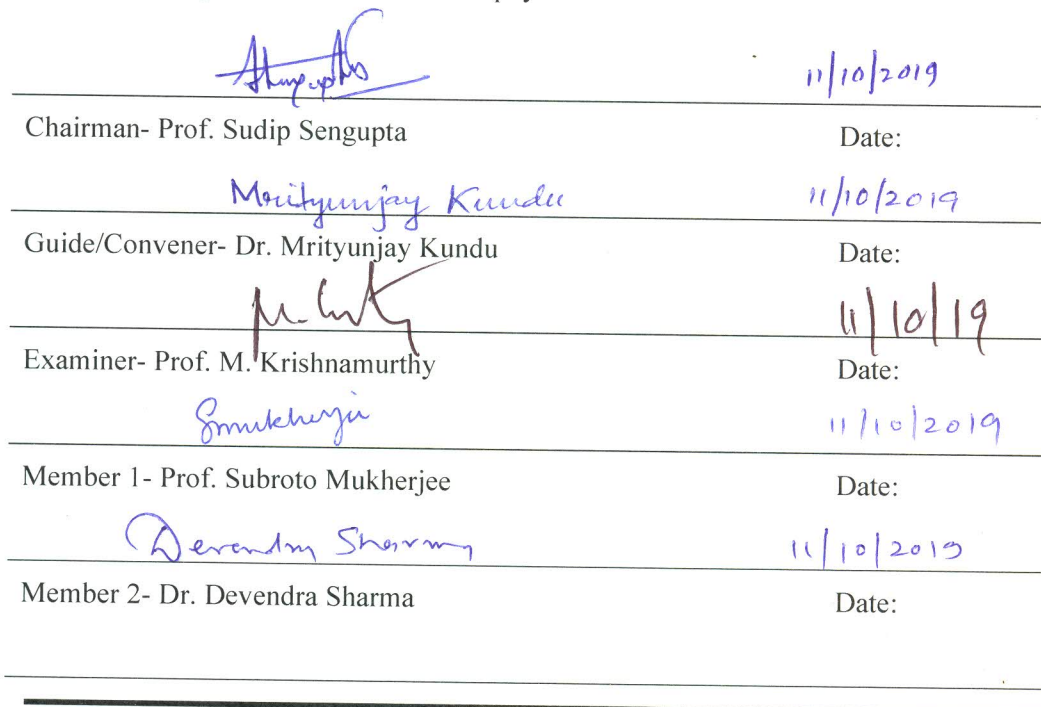 11/10/2019
Chairman- Prof. Sudip Sengupta Date:
Mrityunjay Kundu 11/10/2019
Guide/Convener- Dr. Mrityunjay Kundu Date:
11/10/19
Examiner- Prof. M. Krishnamurthy Date:
Smukherjee 11/10/2019
Member 1- Prof. Subroto Mukherjee Date:
Devendra Sharma 11/10/2019
Member 2- Dr. Devendra Sharma Date: